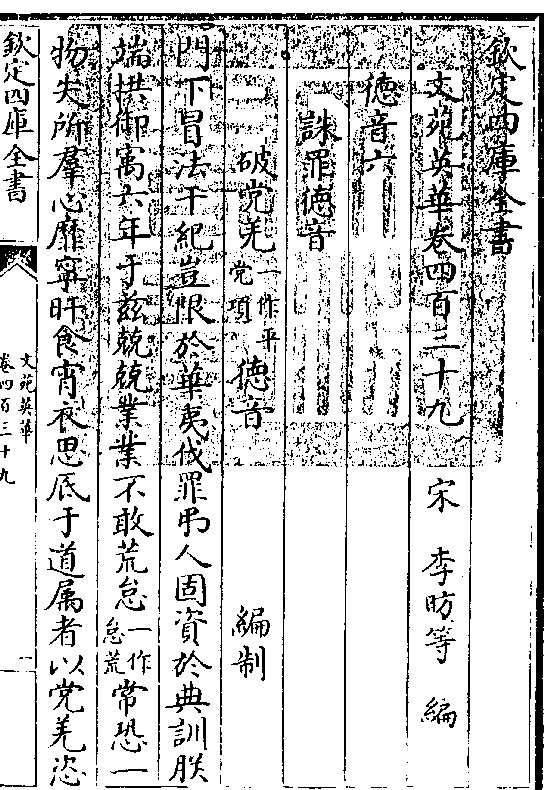 欽定四庫全書
文苑英華卷四百三十九
宋 李昉等 編
德音六
誅罪德音
破党羌一作平党項德音
編制
門下冒法干紀豈限於華夷伐罪弔人固資於典訓朕
端拱御寓六年于兹兢兢業業不敢荒怠一作怠荒常恐一
物失所羣心靡寧旰食宵衣思底于道属者以党羌恣
欽定四庫全書
文苑英華
卷四百三十九
一